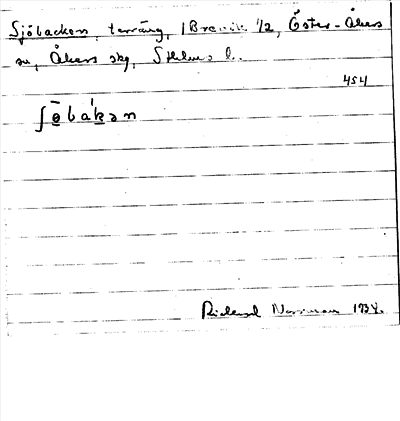 Sjöbacken, terräng, 1 Brevik 1/2, Öster-Åkers
sn, Åkers skg, Sthlms l.
454
ʃɵ̄bak̠ən
Rickard Norrman 1934.